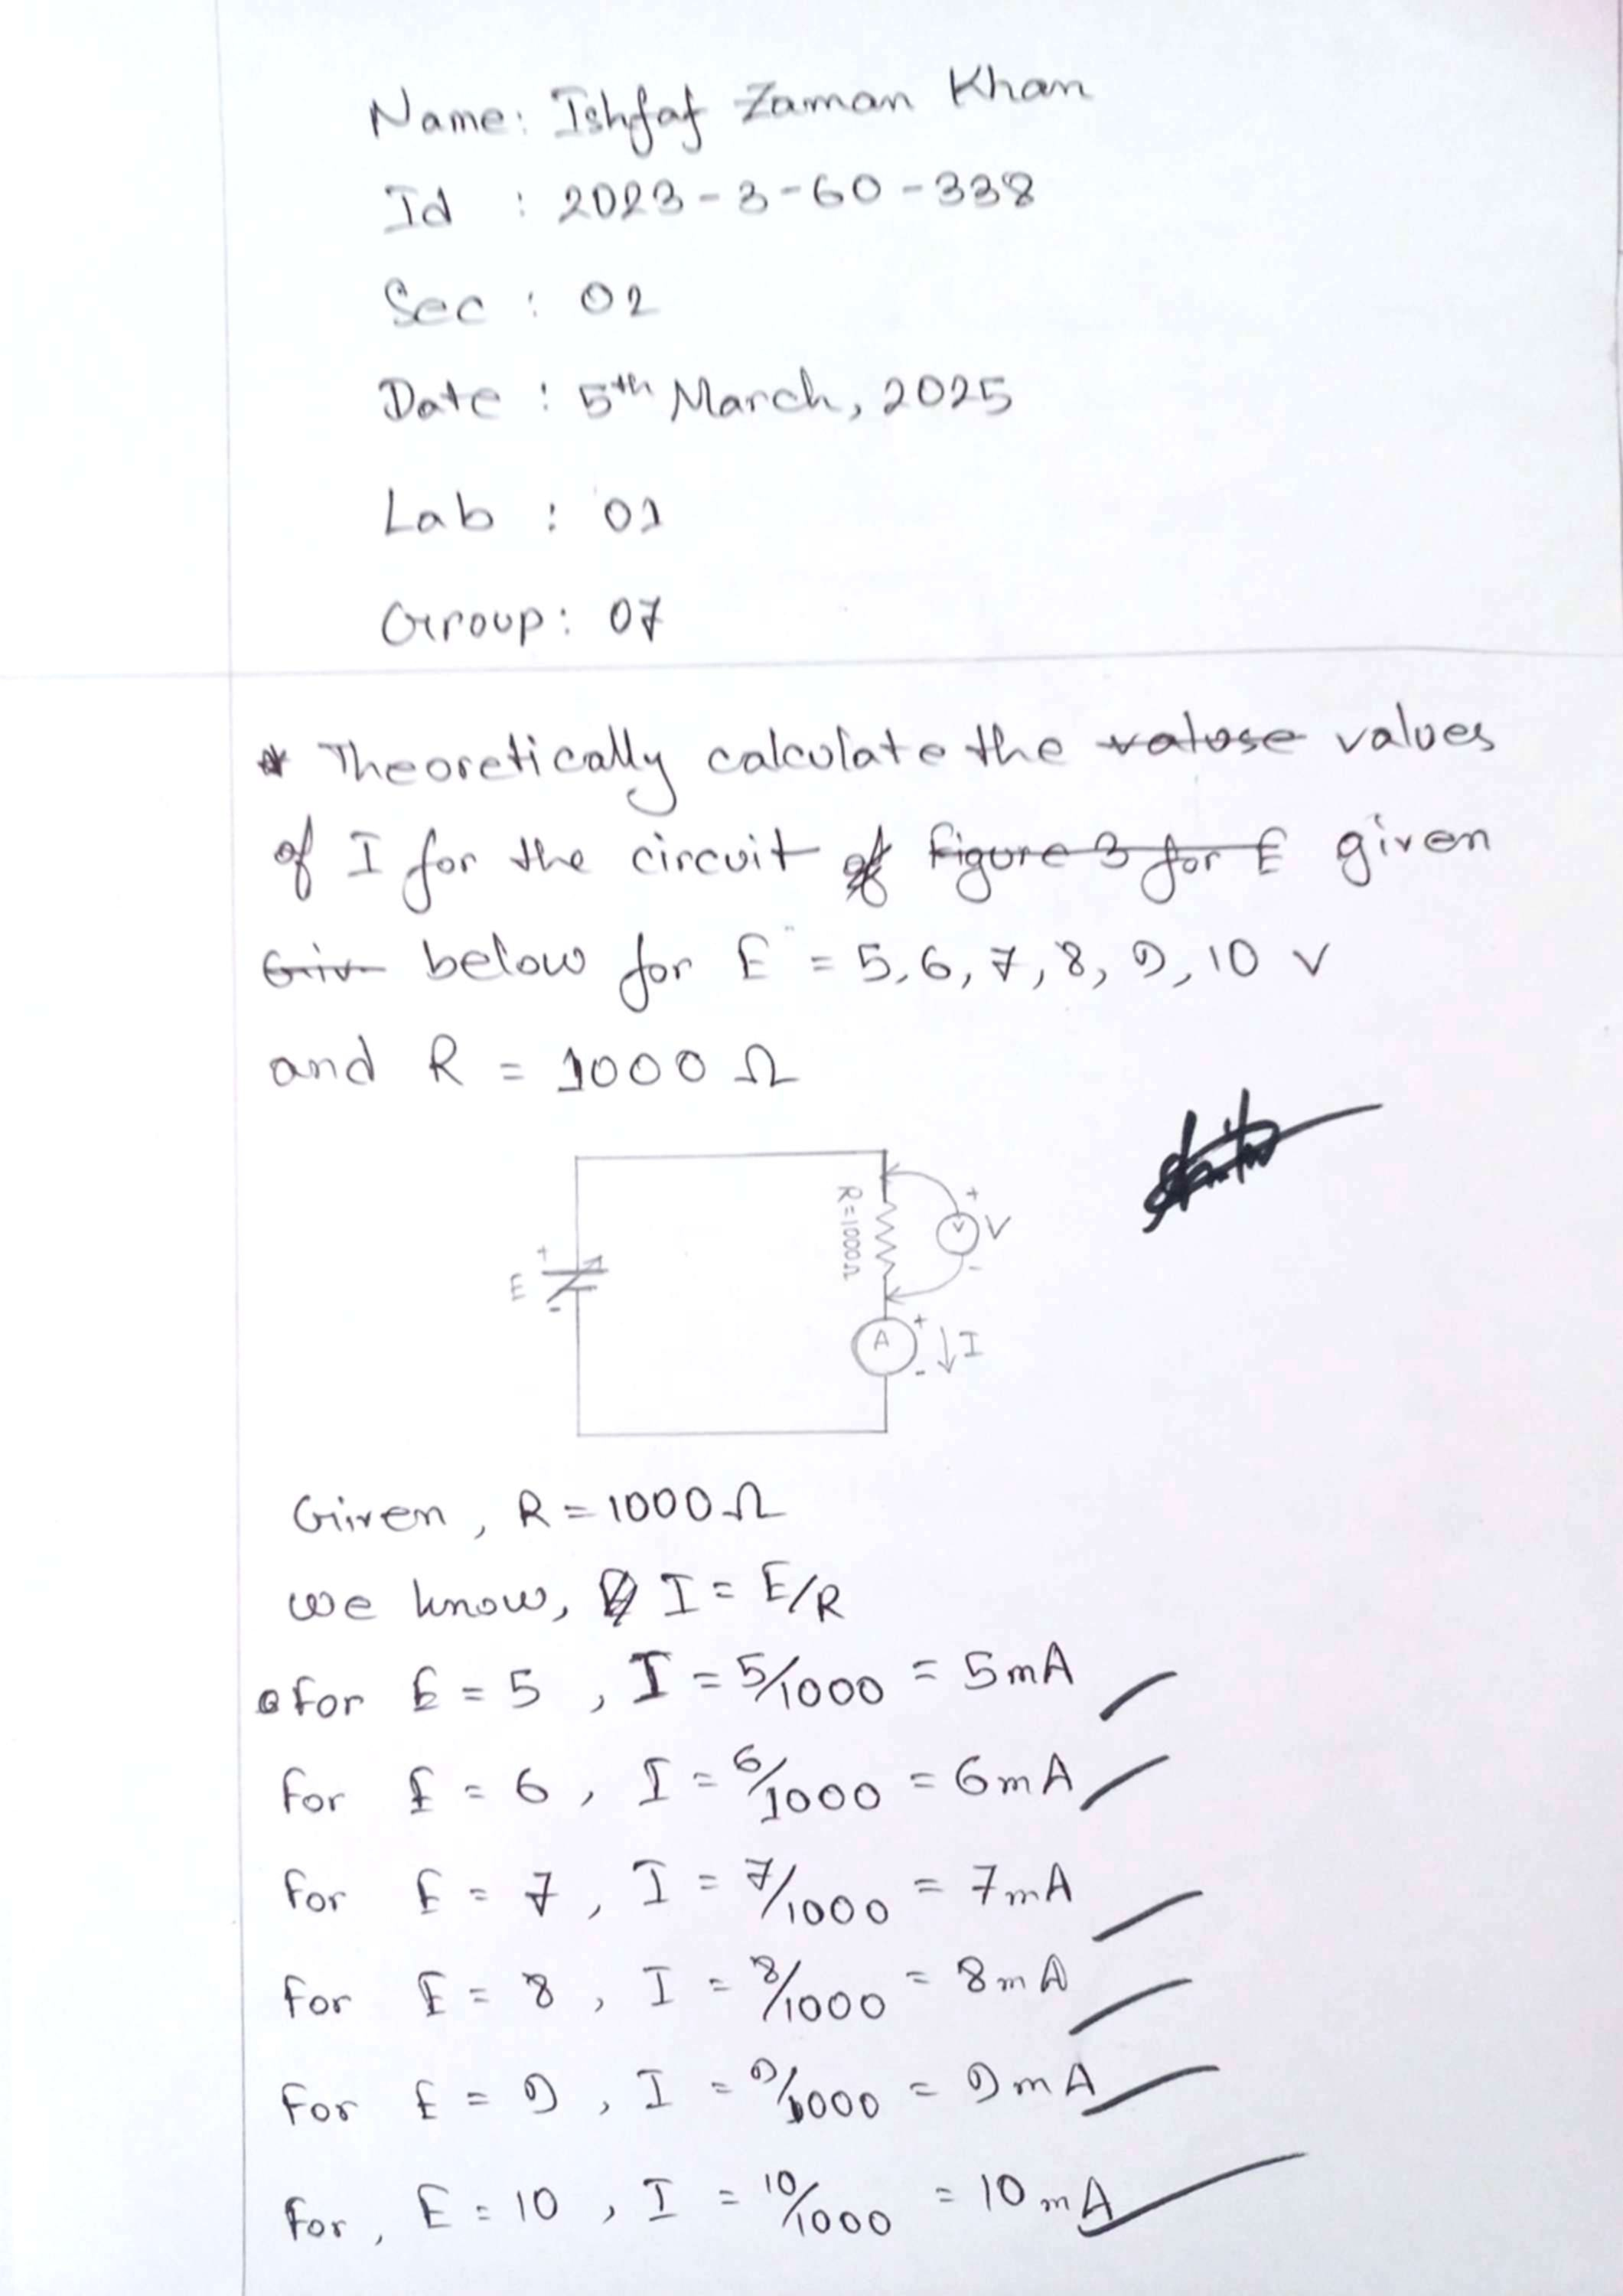 Name: Ishfaf Zaman Khan
Id : 2023-3-60-338
Sec : 02
Date : 5th March, 2025
Lab : 01
Group: 07
* Theoretically calculate the valuse values
of I for the circuit of figure 3 for E given
Giv below for E = 5, 6, 7, 8, 9, 10 V
and R = 1000 Ω
R=1000Ω
+
V
V
-
+
E
-
A
+
-
↓I
Given, R = 1000 Ω
we know, I = E/R
For E = 5 , I = 5/1000 = 5mA
For E = 6 , I = 6/1000 = 6mA
For E = 7 , I = 7/1000 = 7mA
For E = 8 , I = 8/1000 = 8mA
For E = 9 , I = 9/1000 = 9mA
For, E = 10 , I = 10/1000 = 10mA